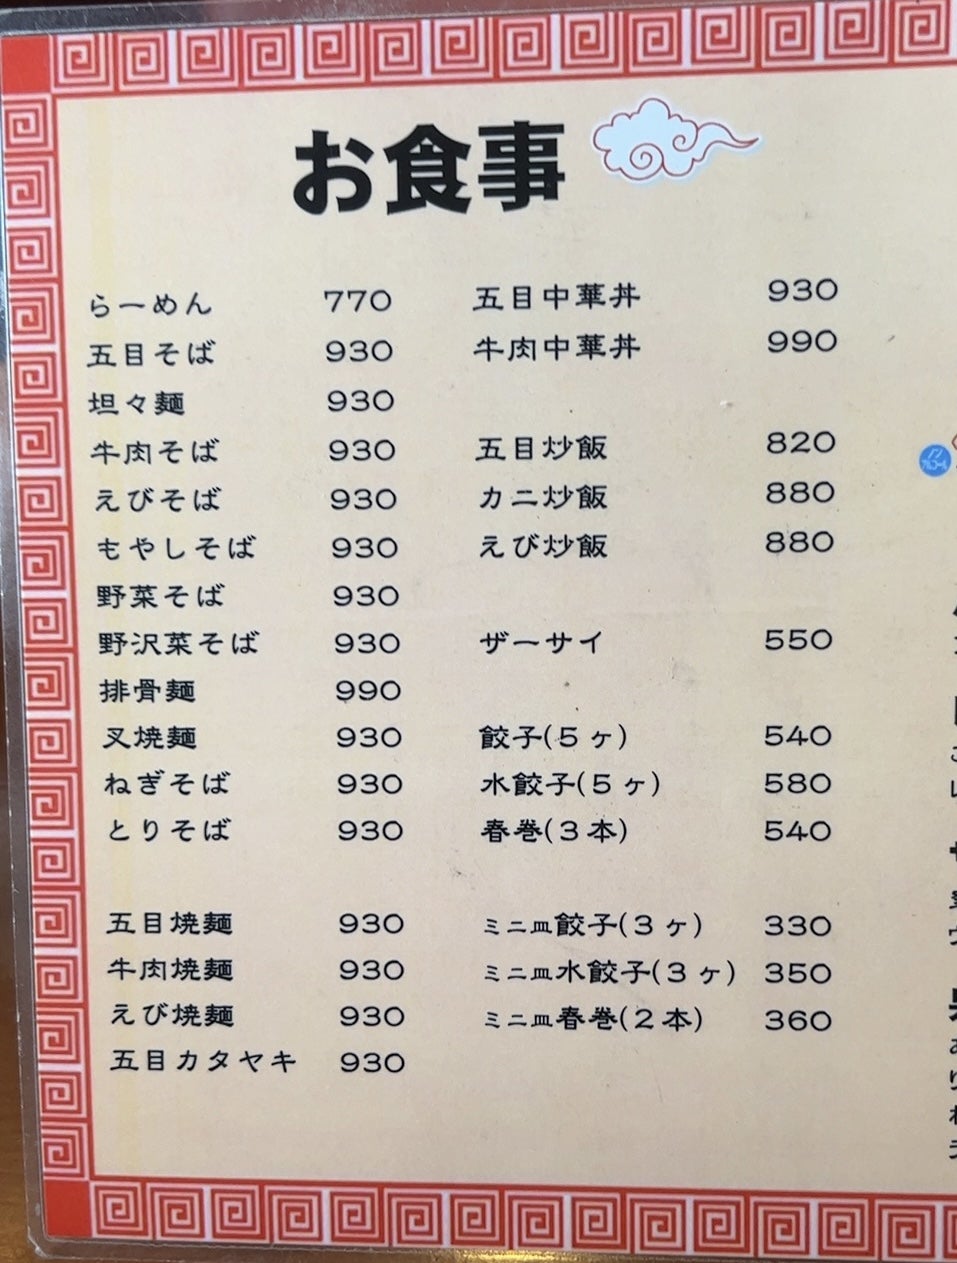 お食事
らーめん 770
五目そば 930
坦々麺 930
牛肉そば 930
えびそば 930
もやしそば 930
野菜そば 930
野沢菜そば 930
排骨麺 990
叉焼麺 930
ねぎそば 930
とりそば 930
五目焼麺 930
牛肉焼麺 930
えび焼麺 930
五目カタヤキ 930
五目中華丼 930
牛肉中華丼 990
五目炒飯 820
カニ炒飯 880
えび炒飯 880
ザーサイ 550
餃子(5ヶ) 540
水餃子(5ヶ) 580
春巻(3本) 540
ミニ皿餃子(3ヶ) 330
ミニ皿水餃子(3ヶ) 350
ミニ皿春巻(2本) 360
ノン
アルコール